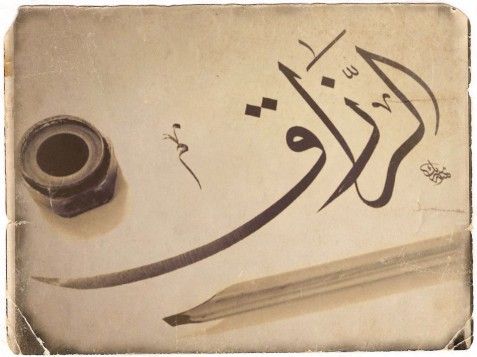 الرزّاق